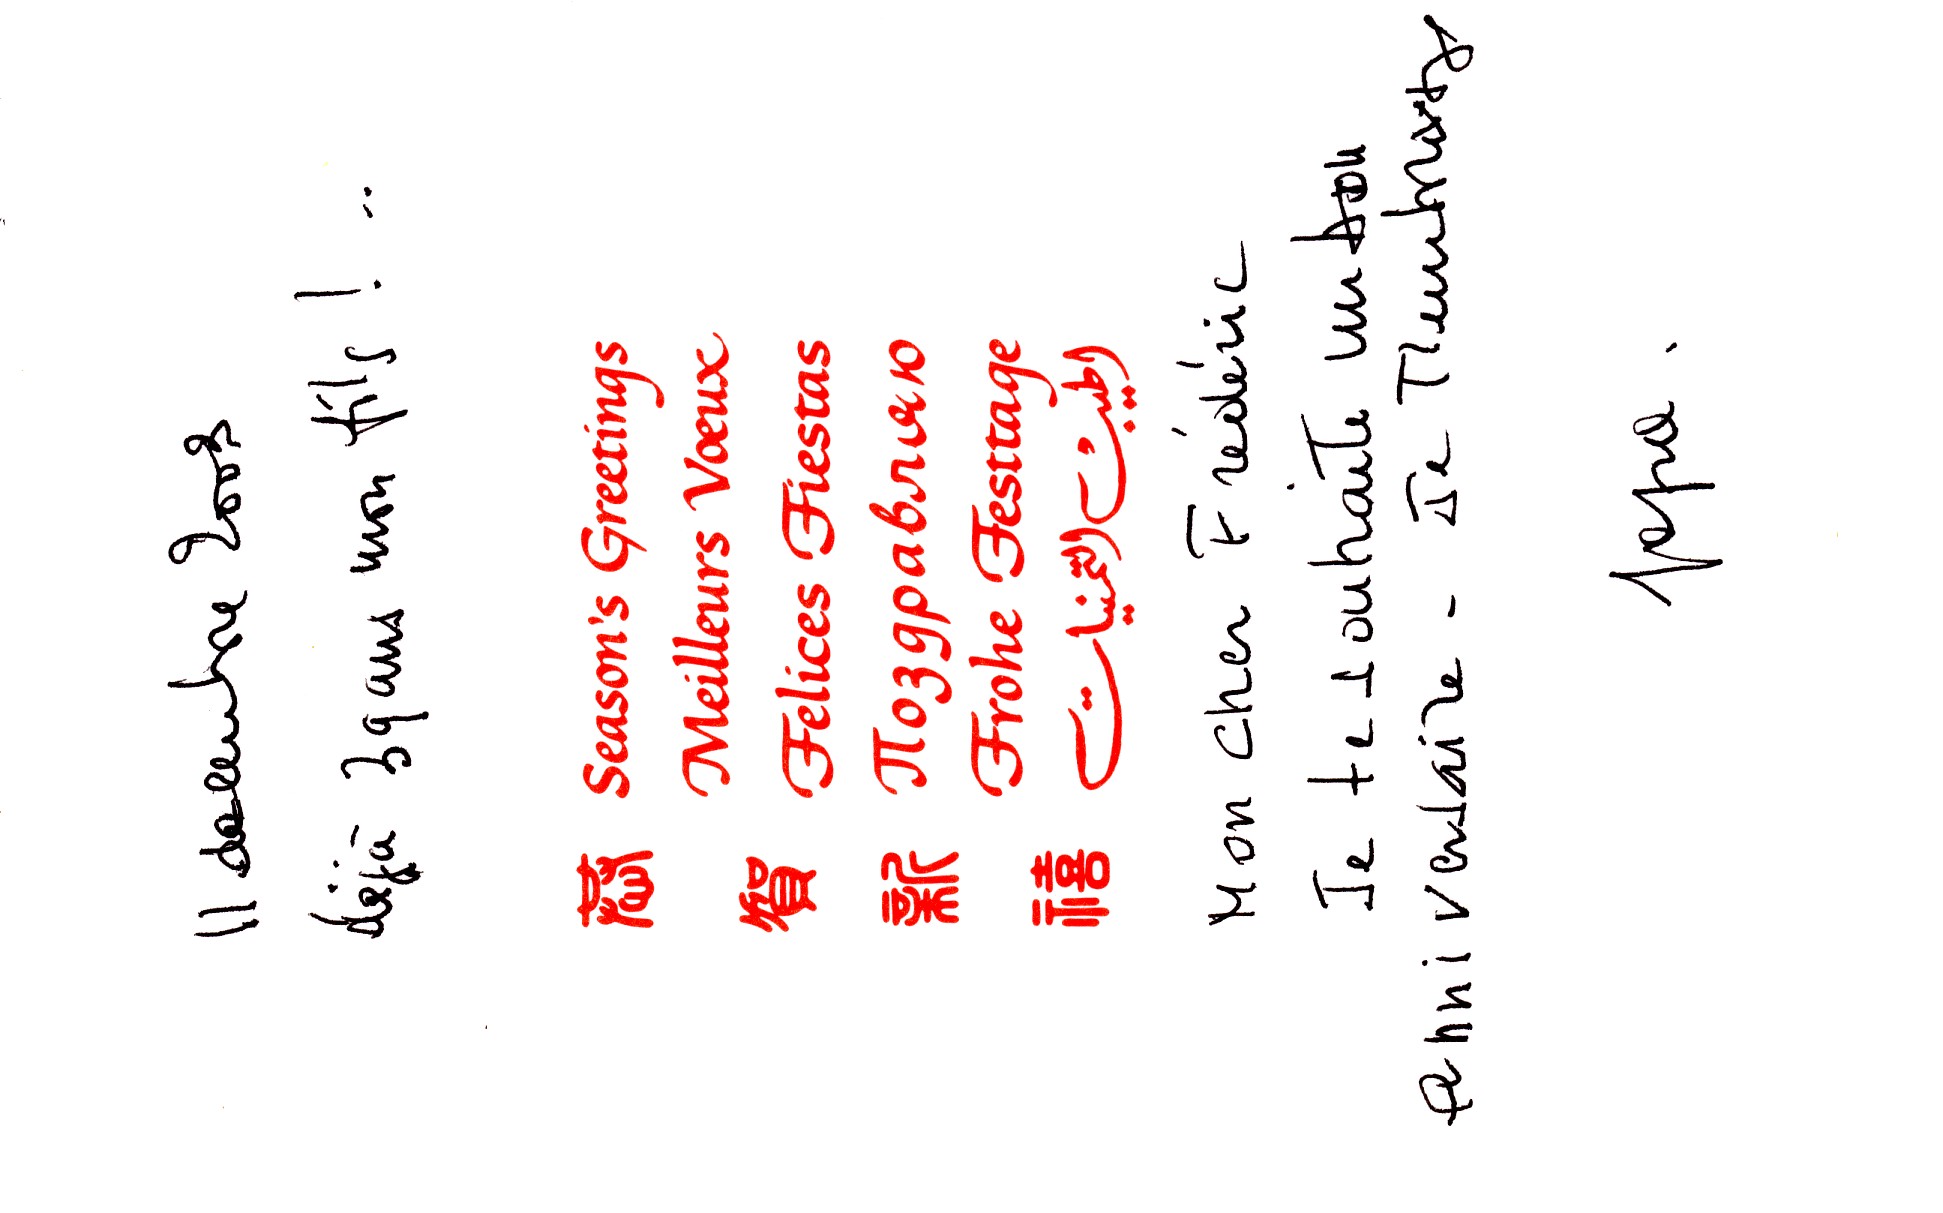 11 decembre 2008
déjà 39 ans mon fils ! ..
Season's Greetings
Meilleurs Vœux
Felices Fiestas
Поздравляю
Frohe Festtage
اطيب التمنيات
恭
賀
新
禧
Mon cher Frédéric
Je te souhaite un bon
anniversaire - Je T'embrasse
papa.